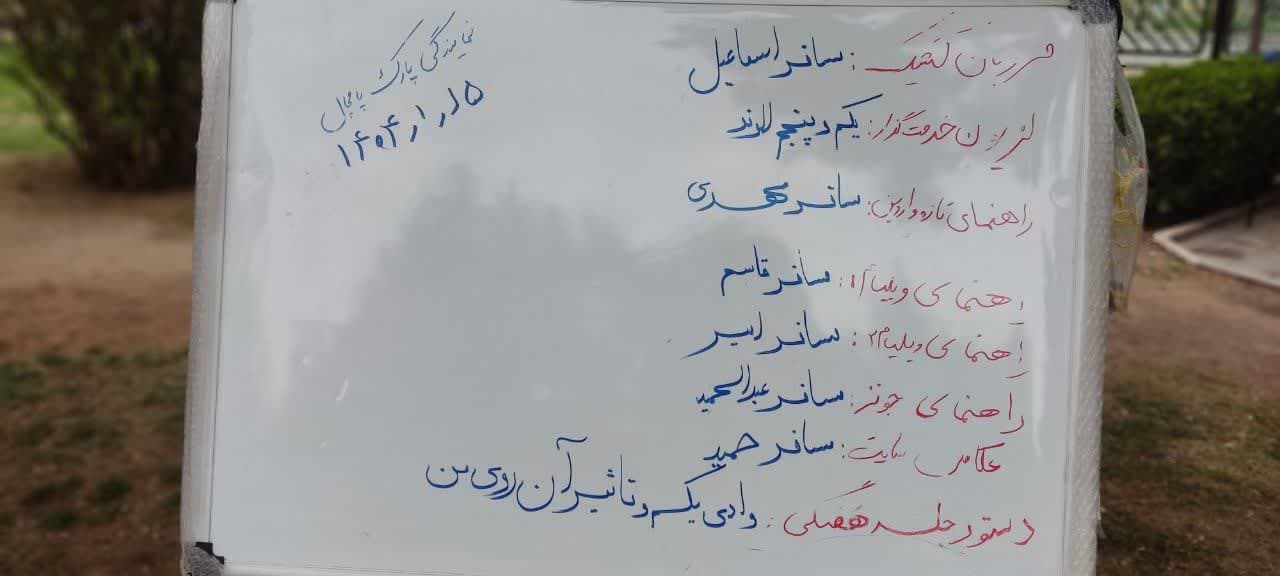 نمایندگی پارک پامچال
۱۴۰۴/۱/۱۵
مرزبان کشیک: مسافر اسماعیل
لژیون خدمتگذار: یکم و پنجم
راهنمای تازه واردین: مسافر مهدی
راهنمای ویلیام ۱: مسافر قاسم
راهنمای ویلیام ۲: مسافر امیر
راهنمای جونز: مسافر عبدالحمید
عکاس سایت: مسافر حمید
دستور جلسه هفتگی: وادی یکم و تاثیر آن روی من